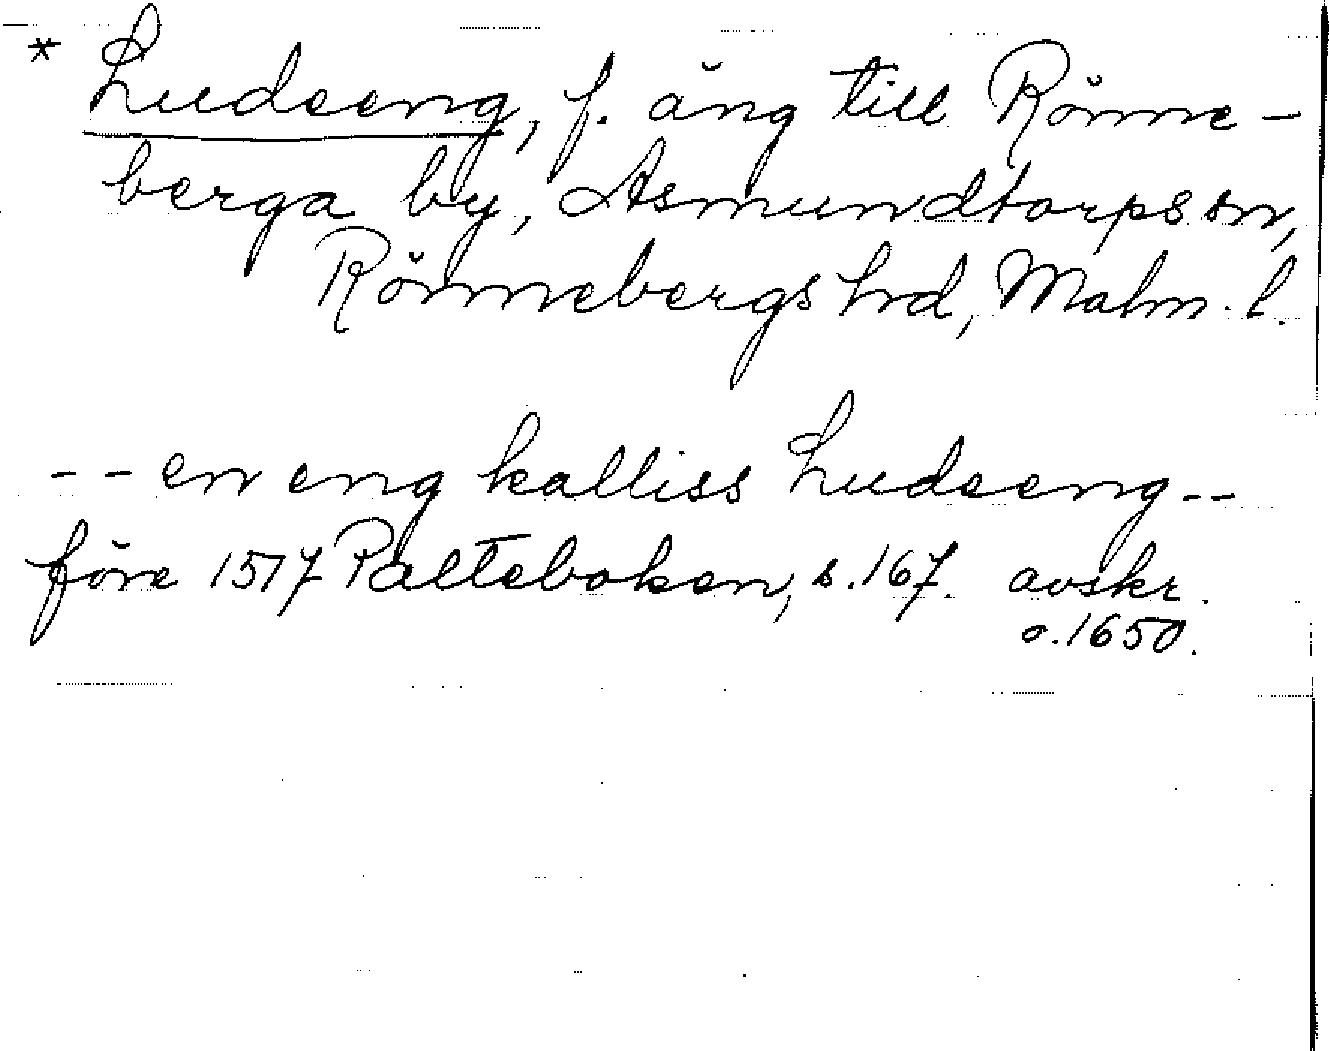 * Ludseng, f. äng till Rönne-
berga by, Asmundtorps sn,
Rönnebergs hrd, Malm. l.
-- en eng kalliss Ludseng --
före 1517 Palteboken, s. 167. avskr.
o. 1650.